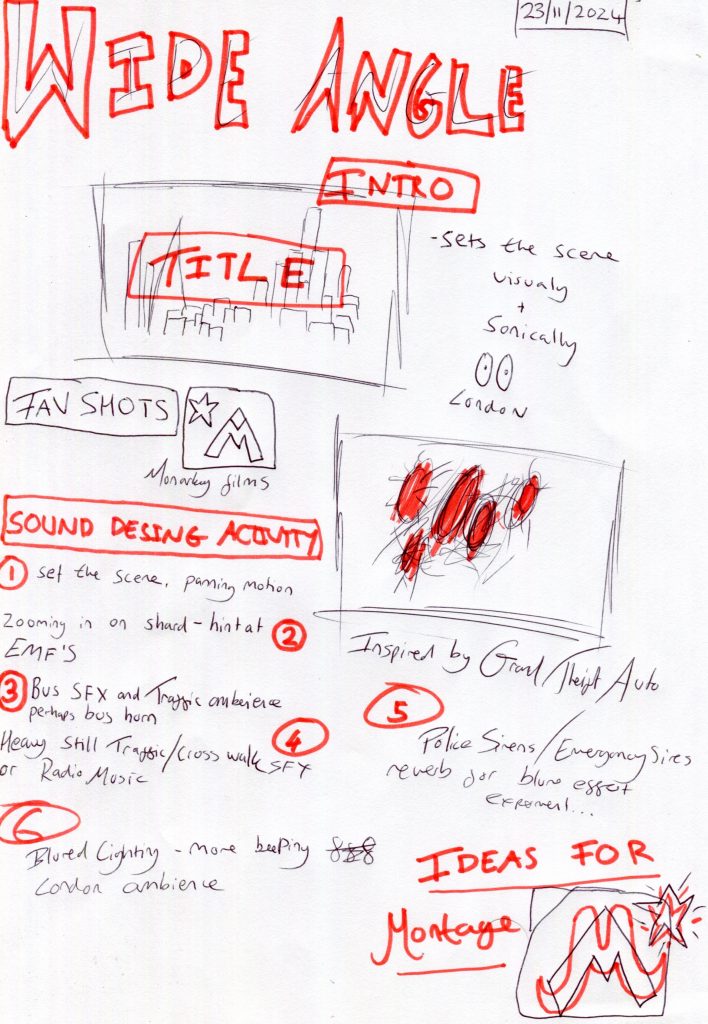 23/11/2024
WIDE ANGLE
INTRO
TITLE
- sets the scene
visualy
+
Sonically
London
FAV SHOTS
Monarkey films
SOUND DESING ACTIVITY
1 set the scene, panning motion
Zooming in on shard - hint at 2
EMF'S
3 Bus SFX and Traffic ambience
perhaps bus horn
Heavy Still Traffic/Cross walk SFX 4
or Radio Music
Inspired by Grand Theift Auto
5
Police Sirens/Emergency Sires
reverb for blure effect
experment...
6
Blured Lighting - more beeping
London ambience
IDEAS FOR
Montage